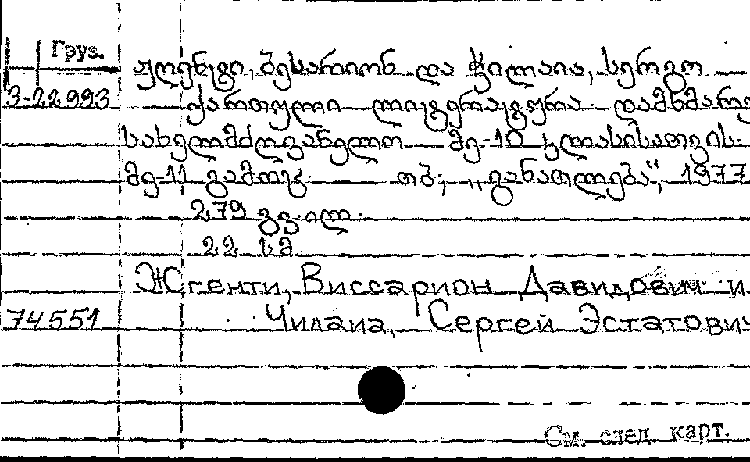 Груз.
ჟღენტი, ბესარიონ და ჭილაია, სერგო
3-22993 ქართული ლიტერატურა დამხმარე
სახელმძღვანელო მე-10 კლასისათვის.
მე-11 გამოც. თბ., „განათლება“, 1977
279 გვ. ილ.
22 სმ
Жгенти, Виссарион Давидович и
74551 Чилаиа, Сергей Эстатович
См. след. карт.